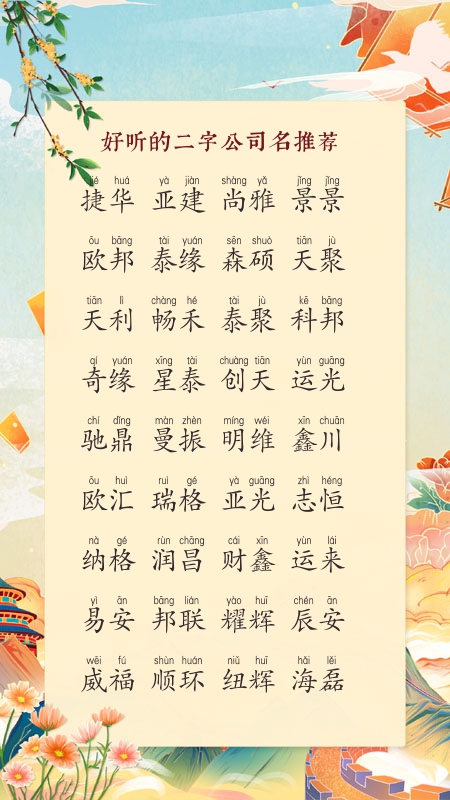 好听的二字公司名推荐
jié huá yà jiàn shàng yǎ jǐng jǐng
捷华 亚建 尚雅 景景
ōu bāng tài yuán sēn shuò tiān jù
欧邦 泰缘 森硕 天聚
tiān lì chàng hé tài jù kē bāng
天利 畅禾 泰聚 科邦
qí yuán xīng tài chuàng tiān yùn guāng
奇缘 星泰 创天 运光
chí dǐng màn zhèn míng wéi xīn chuān
驰鼎 曼振 明维 鑫川
ōu huì ruì gé yà guāng zhì héng
欧汇 瑞格 亚光 志恒
nà gé rùn chāng cái xīn yùn lái
纳格 润昌 财鑫 运来
yì ān bāng lián yào huī chén ān
易安 邦联 耀辉 辰安
wēi fú shùn huán niǔ huī hǎi lěi
威福 顺环 纽辉 海磊